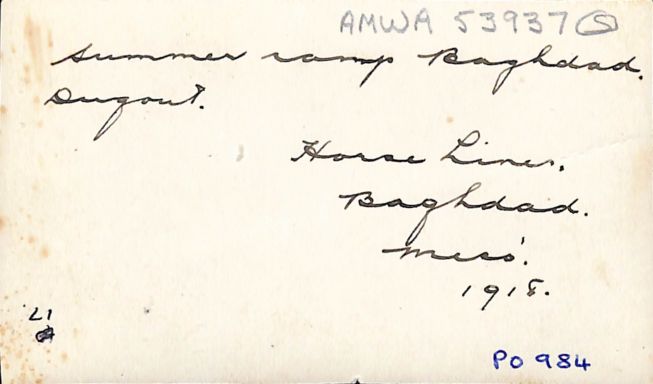 AMWA 53937 S
Summer camp Baghdad.
Dugout.
Horse Lines,
Baghdad.
Meso'.
1918.
21
PO 984